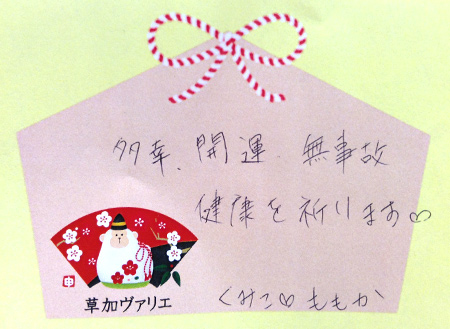 多幸、開運、無事故
健康を祈ります♡
くみこ♡ももか
申
草加ヴァリエ